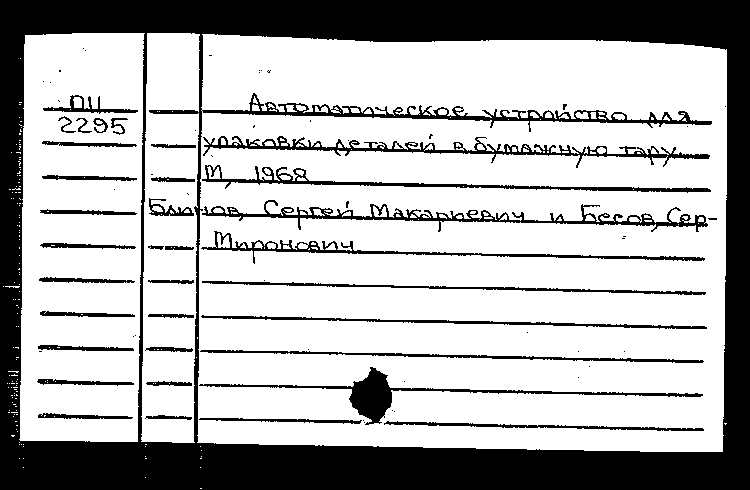 ПЦ
2295
Автоматическое устройство для
упаковки деталей в бумажную тару
М, 1968
Блинов, Сергей Макариевич и Бесов, Сер-
Миронович